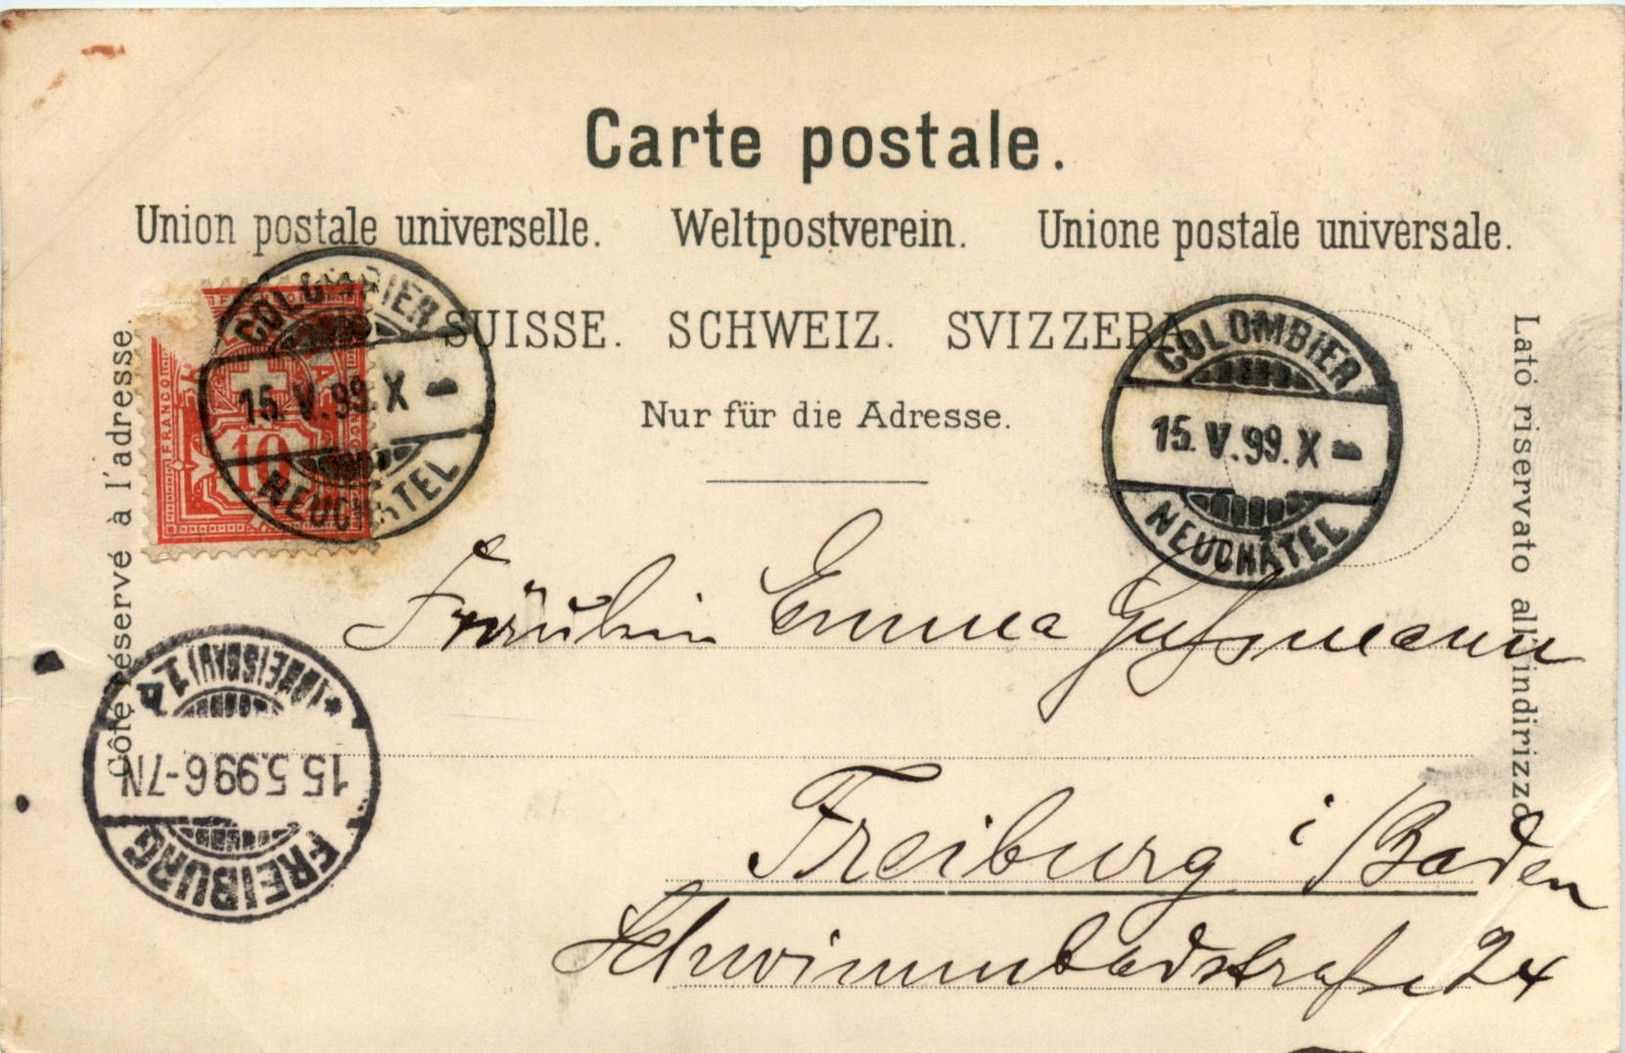 Carte postale.
Union postale universelle. Weltpostverein. Unione postale universale.
SUISSE. SCHWEIZ. SVIZZERA
Nur für die Adresse.
Côté réservé à l'adresse.
Lato riservato all'indirizzo
FRANCO
10
COLOMBIER
15.V.99.X
NEUCHÂTEL
COLOMBIER
15.V.99.X
NEUCHÂTEL
Fräulein Emma
Freiburg i/Baden
Schwimmbadstraße 24
FREIBURG
15.5.99.6-7N
(BREISGAU) 1